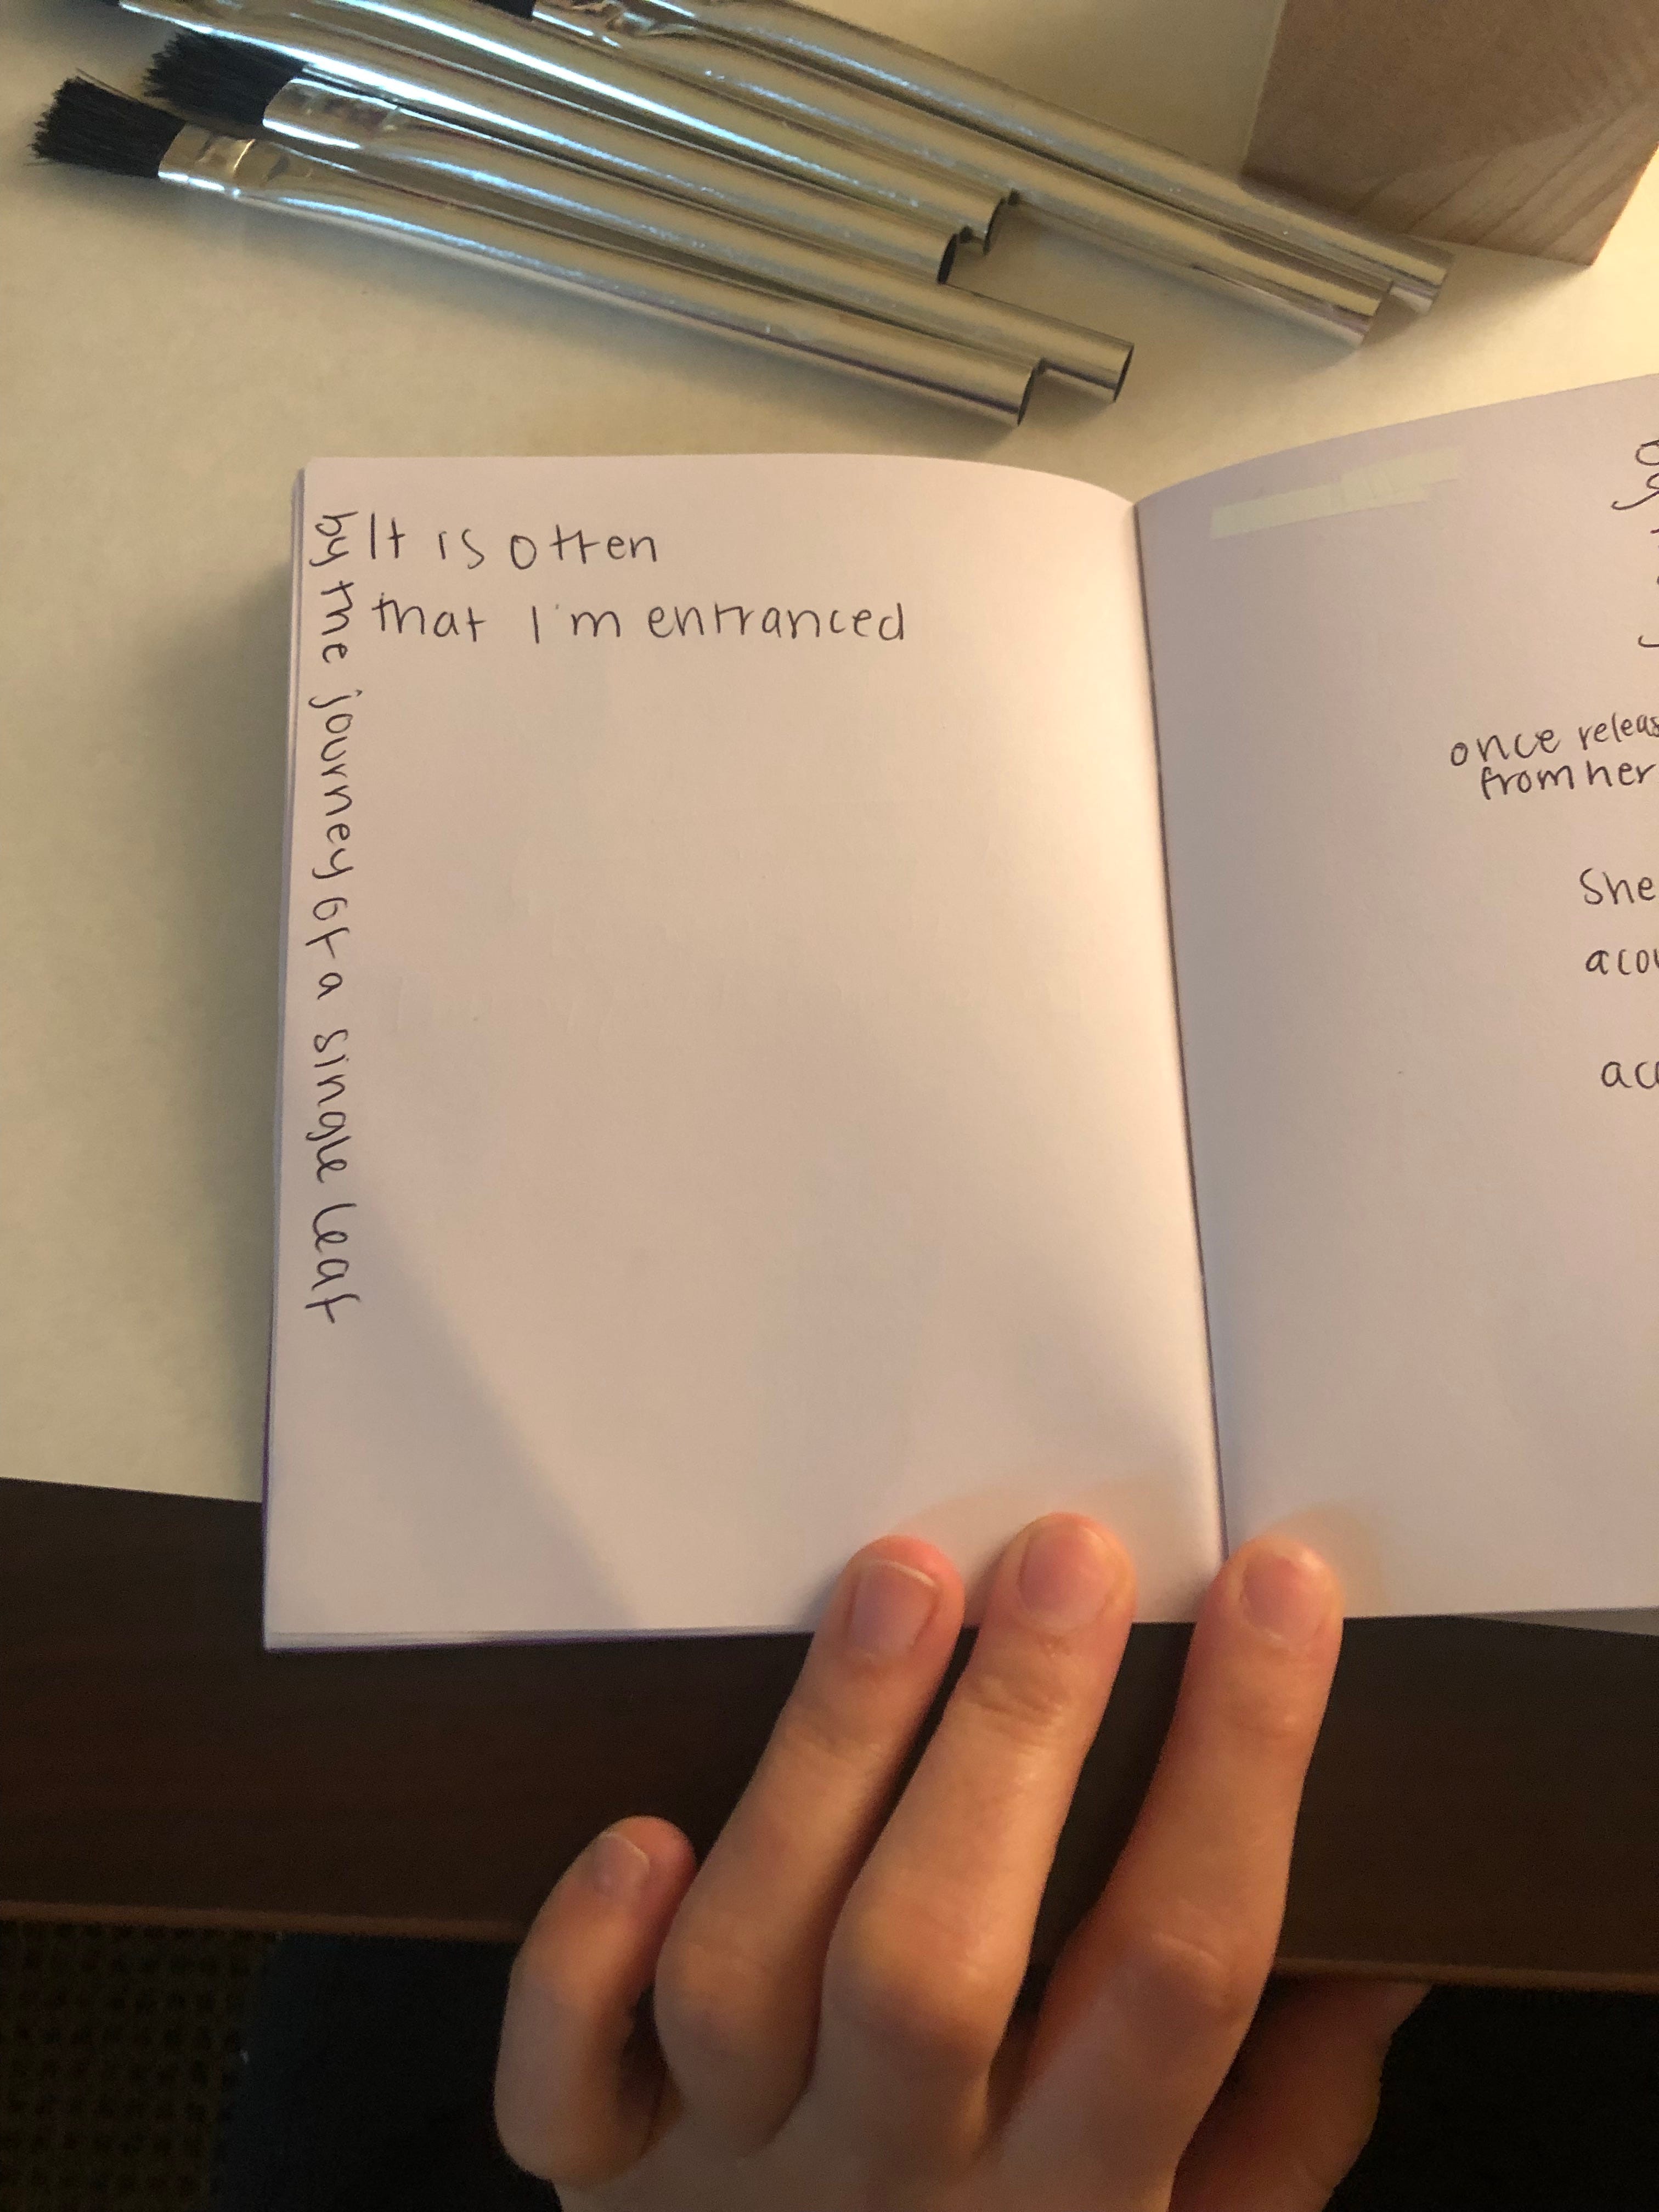 It is often
that I'm entranced
by the journey of a single leaf
once
from her
She